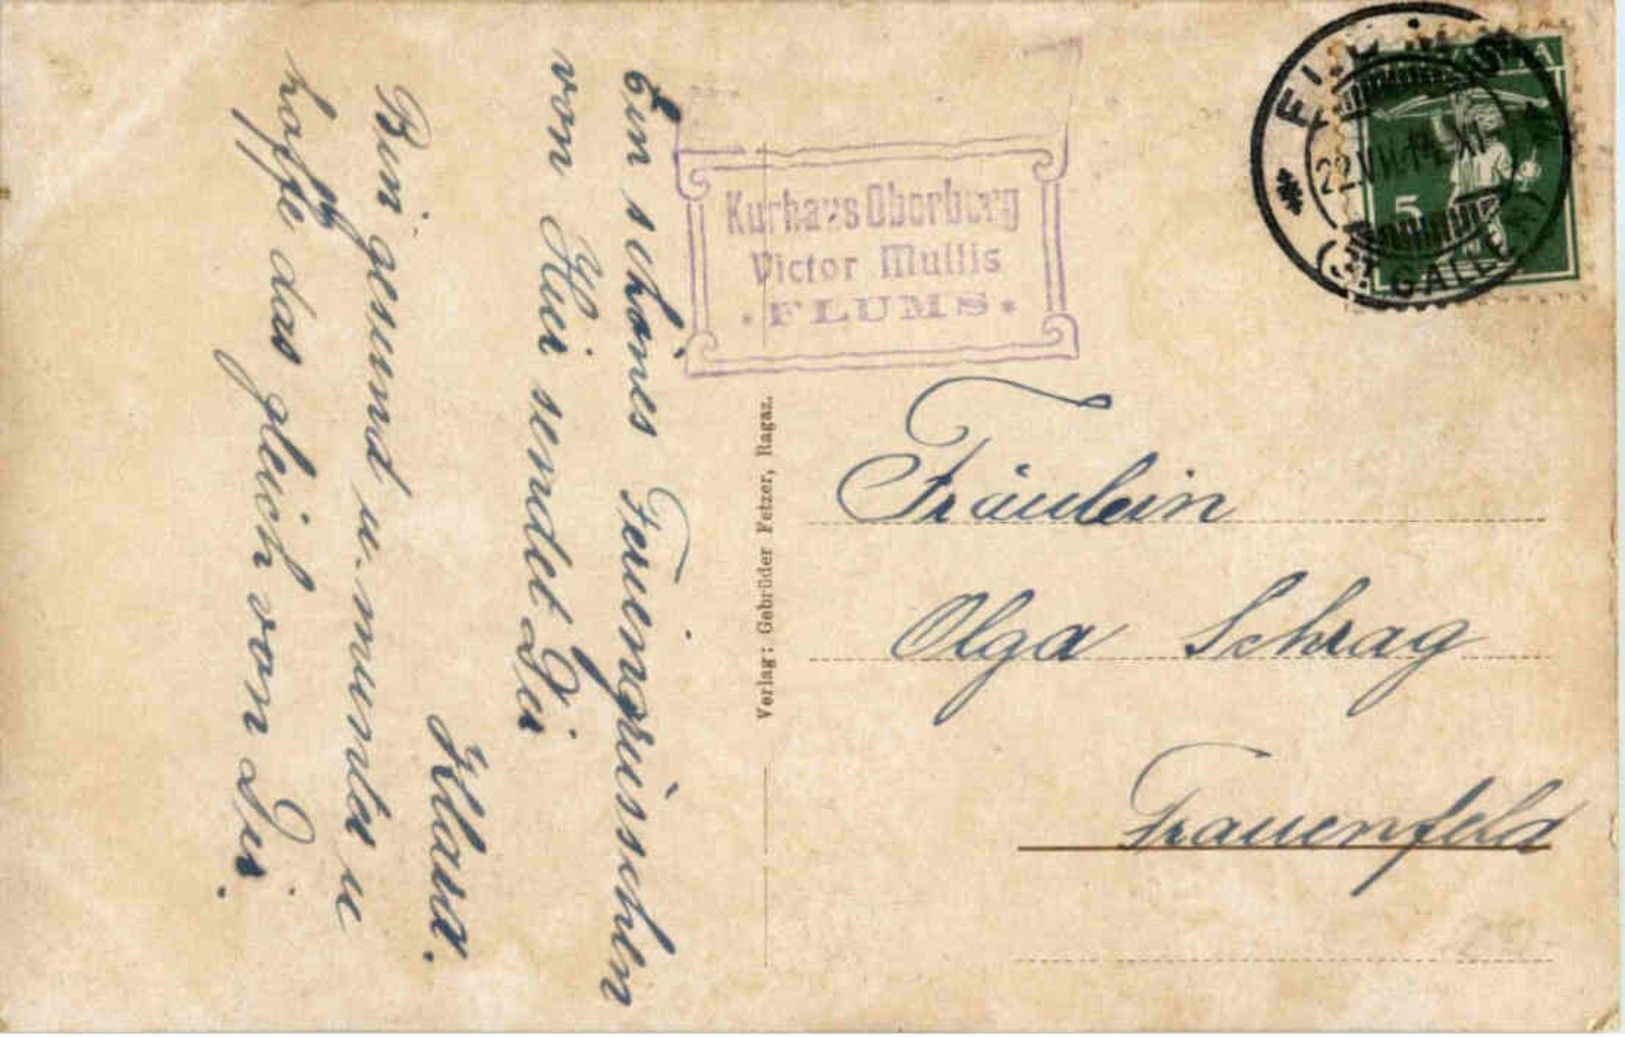 Ein schönes Feriengrüsschen
von Hier sendet Dir
Klara.
Bin gesund u. munter u
hoffe das gleich von Dir.
Kurhaus Oberberg
Victor Mullis
* FLUMS *
Verlag: Gebrüder Fetzer, Ragaz.
FLUMS
22.VII.14. XI
(ST. GALLEN)
HELVETIA
5
Fräulein
Olga Schrag
Frauenfeld